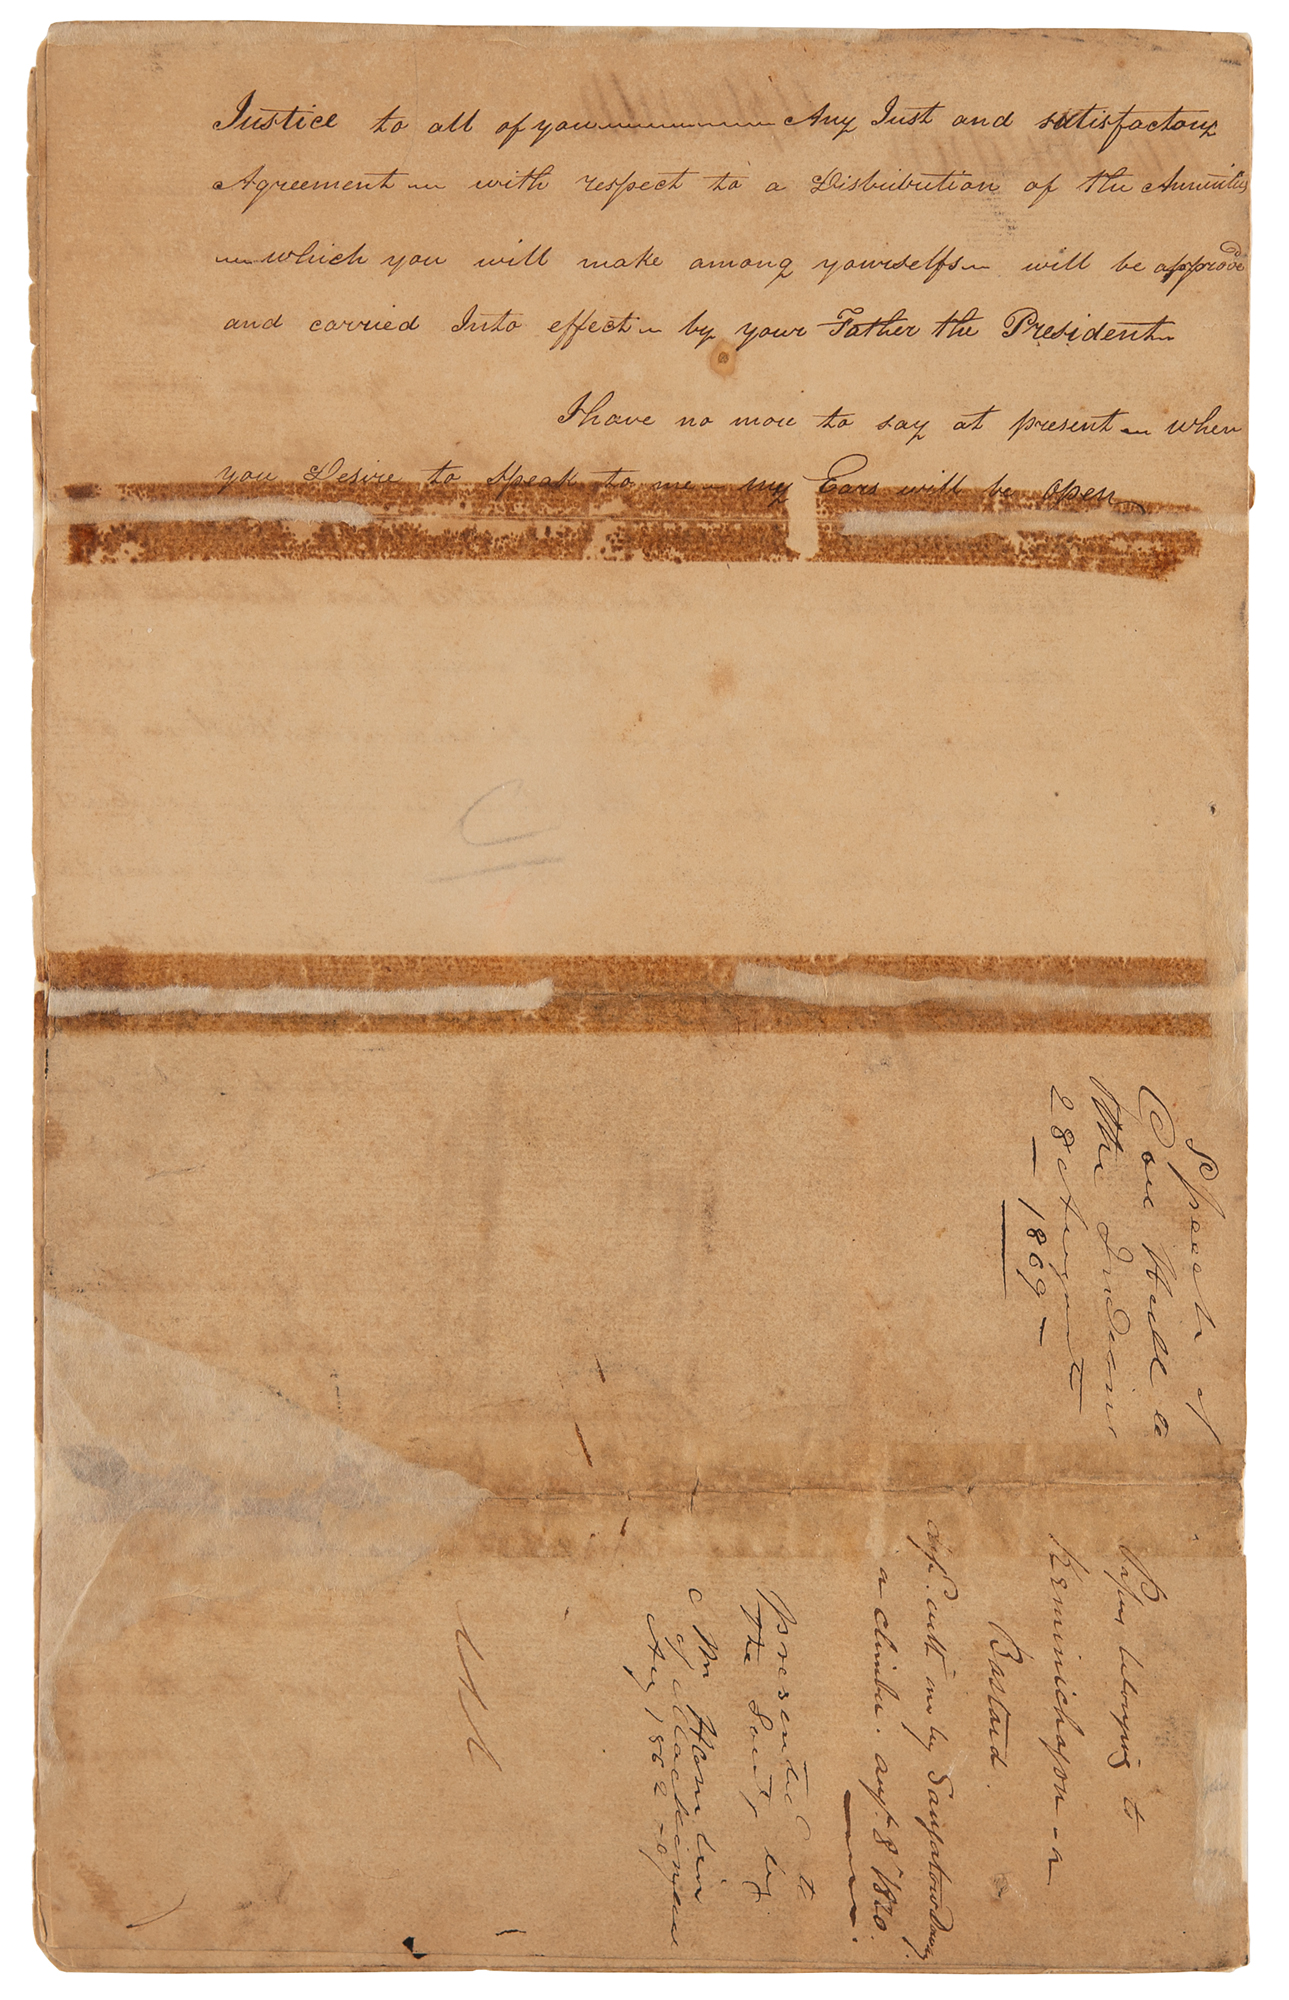 Justice to all of you Any Just and satisfactory
Agreement with respect to a Distribution of the Annuities
which you will make among yourselfs will be approvd
and carried Into effect by your Father the President
I have no more to say at present when
you Desire to speak to me my Ears will be open
Speech of
Gov Hull to
the Indians
28 August
1809
Papers belonging to
Keminichagon - a
Bastard.
dep. with me by
a climber. augt. 8 1820.
presented to
the Socity by
Mr Hamlin
of Mackinaw
Aug 1862
C